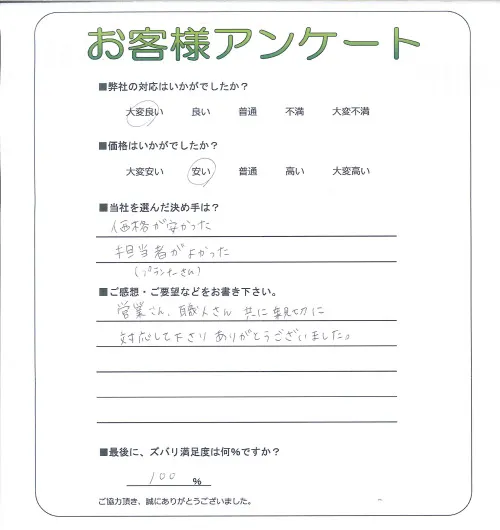 お客様アンケート
■弊社の対応はいかがでしたか?
大変良い 良い 普通 不満 大変不満
■価格はいかがでしたか?
大変安い 安い 普通 高い 大変高い
■当社を選んだ決め手は?
価格が安かった
担当者がよかった
(プランナーさん)
■ご感想・ご要望などをお書き下さい。
営業さん、職人さん 共に親切に
対応して下さり ありがとうございました。
■最後に、ズバリ満足度は何%ですか?
100 %
ご協力頂き、誠にありがとうございました。